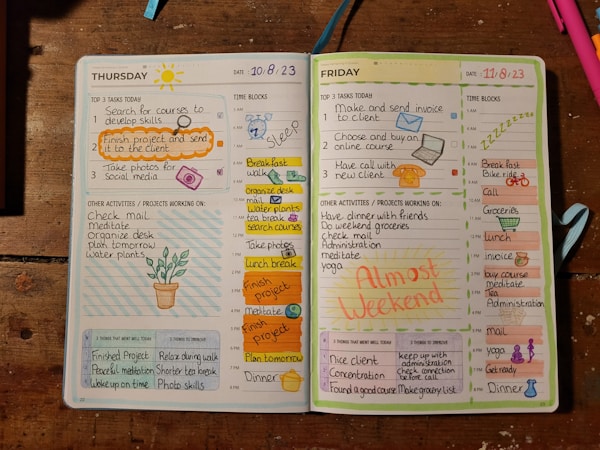 THURSDAY
DATE: 10/8/23
TOP 3 TASKS TODAY
1 Search for courses to
develop skills
2 Finish project and send
it to the client
3 Take photos for
social media
OTHER ACTIVITIES / PROJECTS WORKING ON:
Check mail
Meditate
organize desk
plan tomorrow
water plants
3 THINGS THAT WENT WELL TODAY
Finished Project
Peaceful meditation
Woke up on time
3 THINGS TO IMPROVE
Relax during walk
Shorter tea break
Photo skills
TIME BLOCKS
5 AM
Sleep
Breakfast
walk
organize desk
mail
Water plants
tea break
search courses
Take photos
Lunch break
Finish
project
Meditate
Finish
project
Plan tomorrow
Dinner
FRIDAY
DATE: 11/8/23
TOP 3 TASKS TODAY
1 Make and send invoice
to client
2 Choose and buy an
online course
3 Have call with
new client
OTHER ACTIVITIES / PROJECTS WORKING ON:
Have dinner with friends
Do weekend groceries
check mail
Administration
meditate
yoga
Almost
Weekend
3 THINGS THAT WENT WELL TODAY
Nice client
Concentration
Found a good course
3 THINGS TO IMPROVE
keep up with
administration
Check connection
before call
Make grocery list
TIME BLOCKS
zzzzzzzz
Breakfast
Bike ride
Call
Groceries
Lunch
invoice
buy course
meditate
Tea
Administration
Mail
yoga
Get ready
Dinner